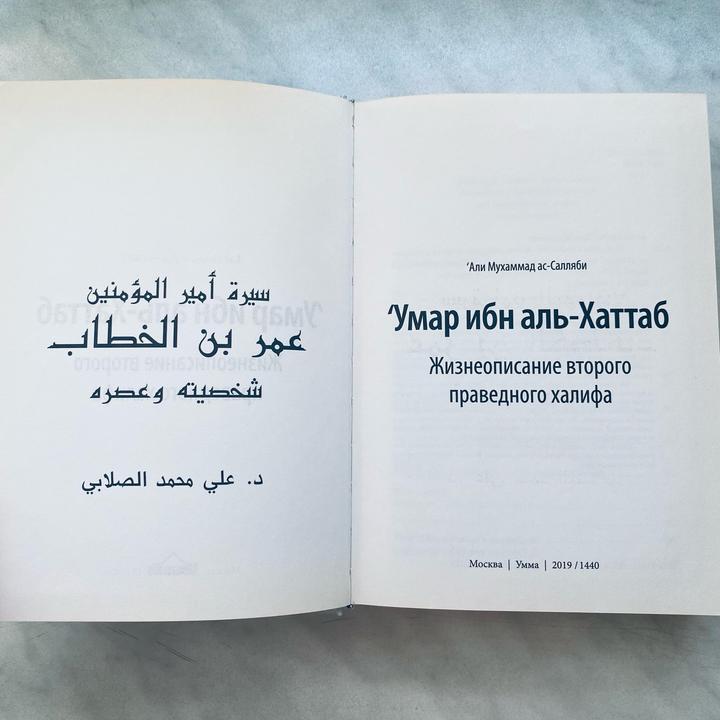 سيرة أمير المؤمنين
عمر بن الخطاب
شخصيته وعصره
د. علي محمد الصلابي
‘Али Мухаммад ас-Салляби
‘Умар ибн аль-Хаттаб
Жизнеописание второго
праведного халифа
Москва | Умма | 2019 / 1440